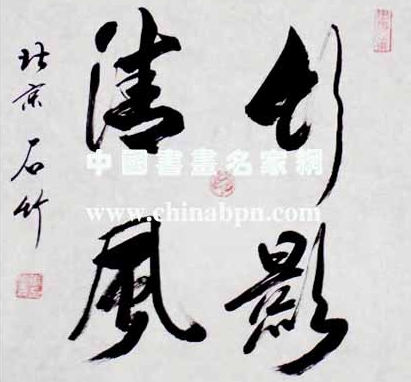 竹影
清風
北京 石竹
中國書畫名家網
www.chinabpn.com